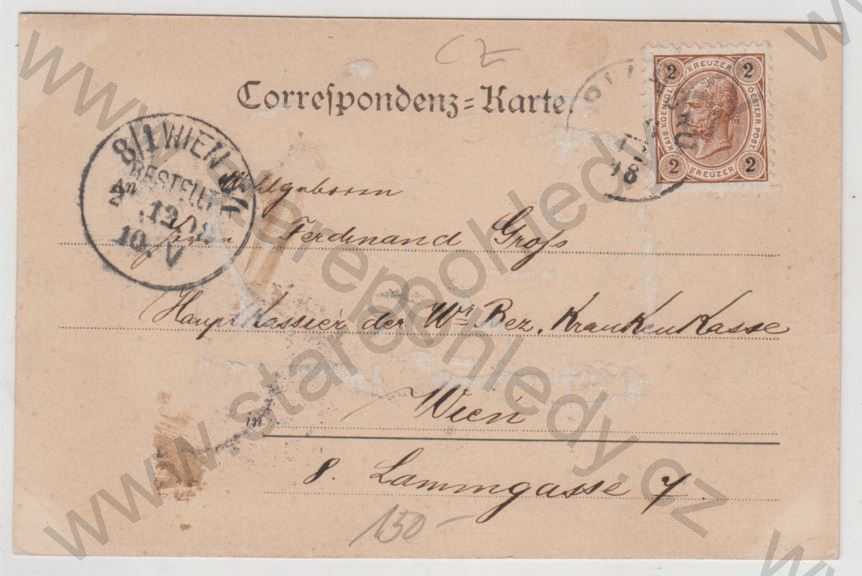 CZ
Correspondenz=Karte.
2 KREUZER 2
2 KREUZER 2
8/1 WIEN
BESTELLT
12
10. V
Wohlgeboren
Herrn Ferdinand Groß
Hauptkassier der Wr Bez. Krankenkasse
in Wien
8. Lammgasse 7.
150-
www.verejnepohledy.cz
www.starepohledy.cz